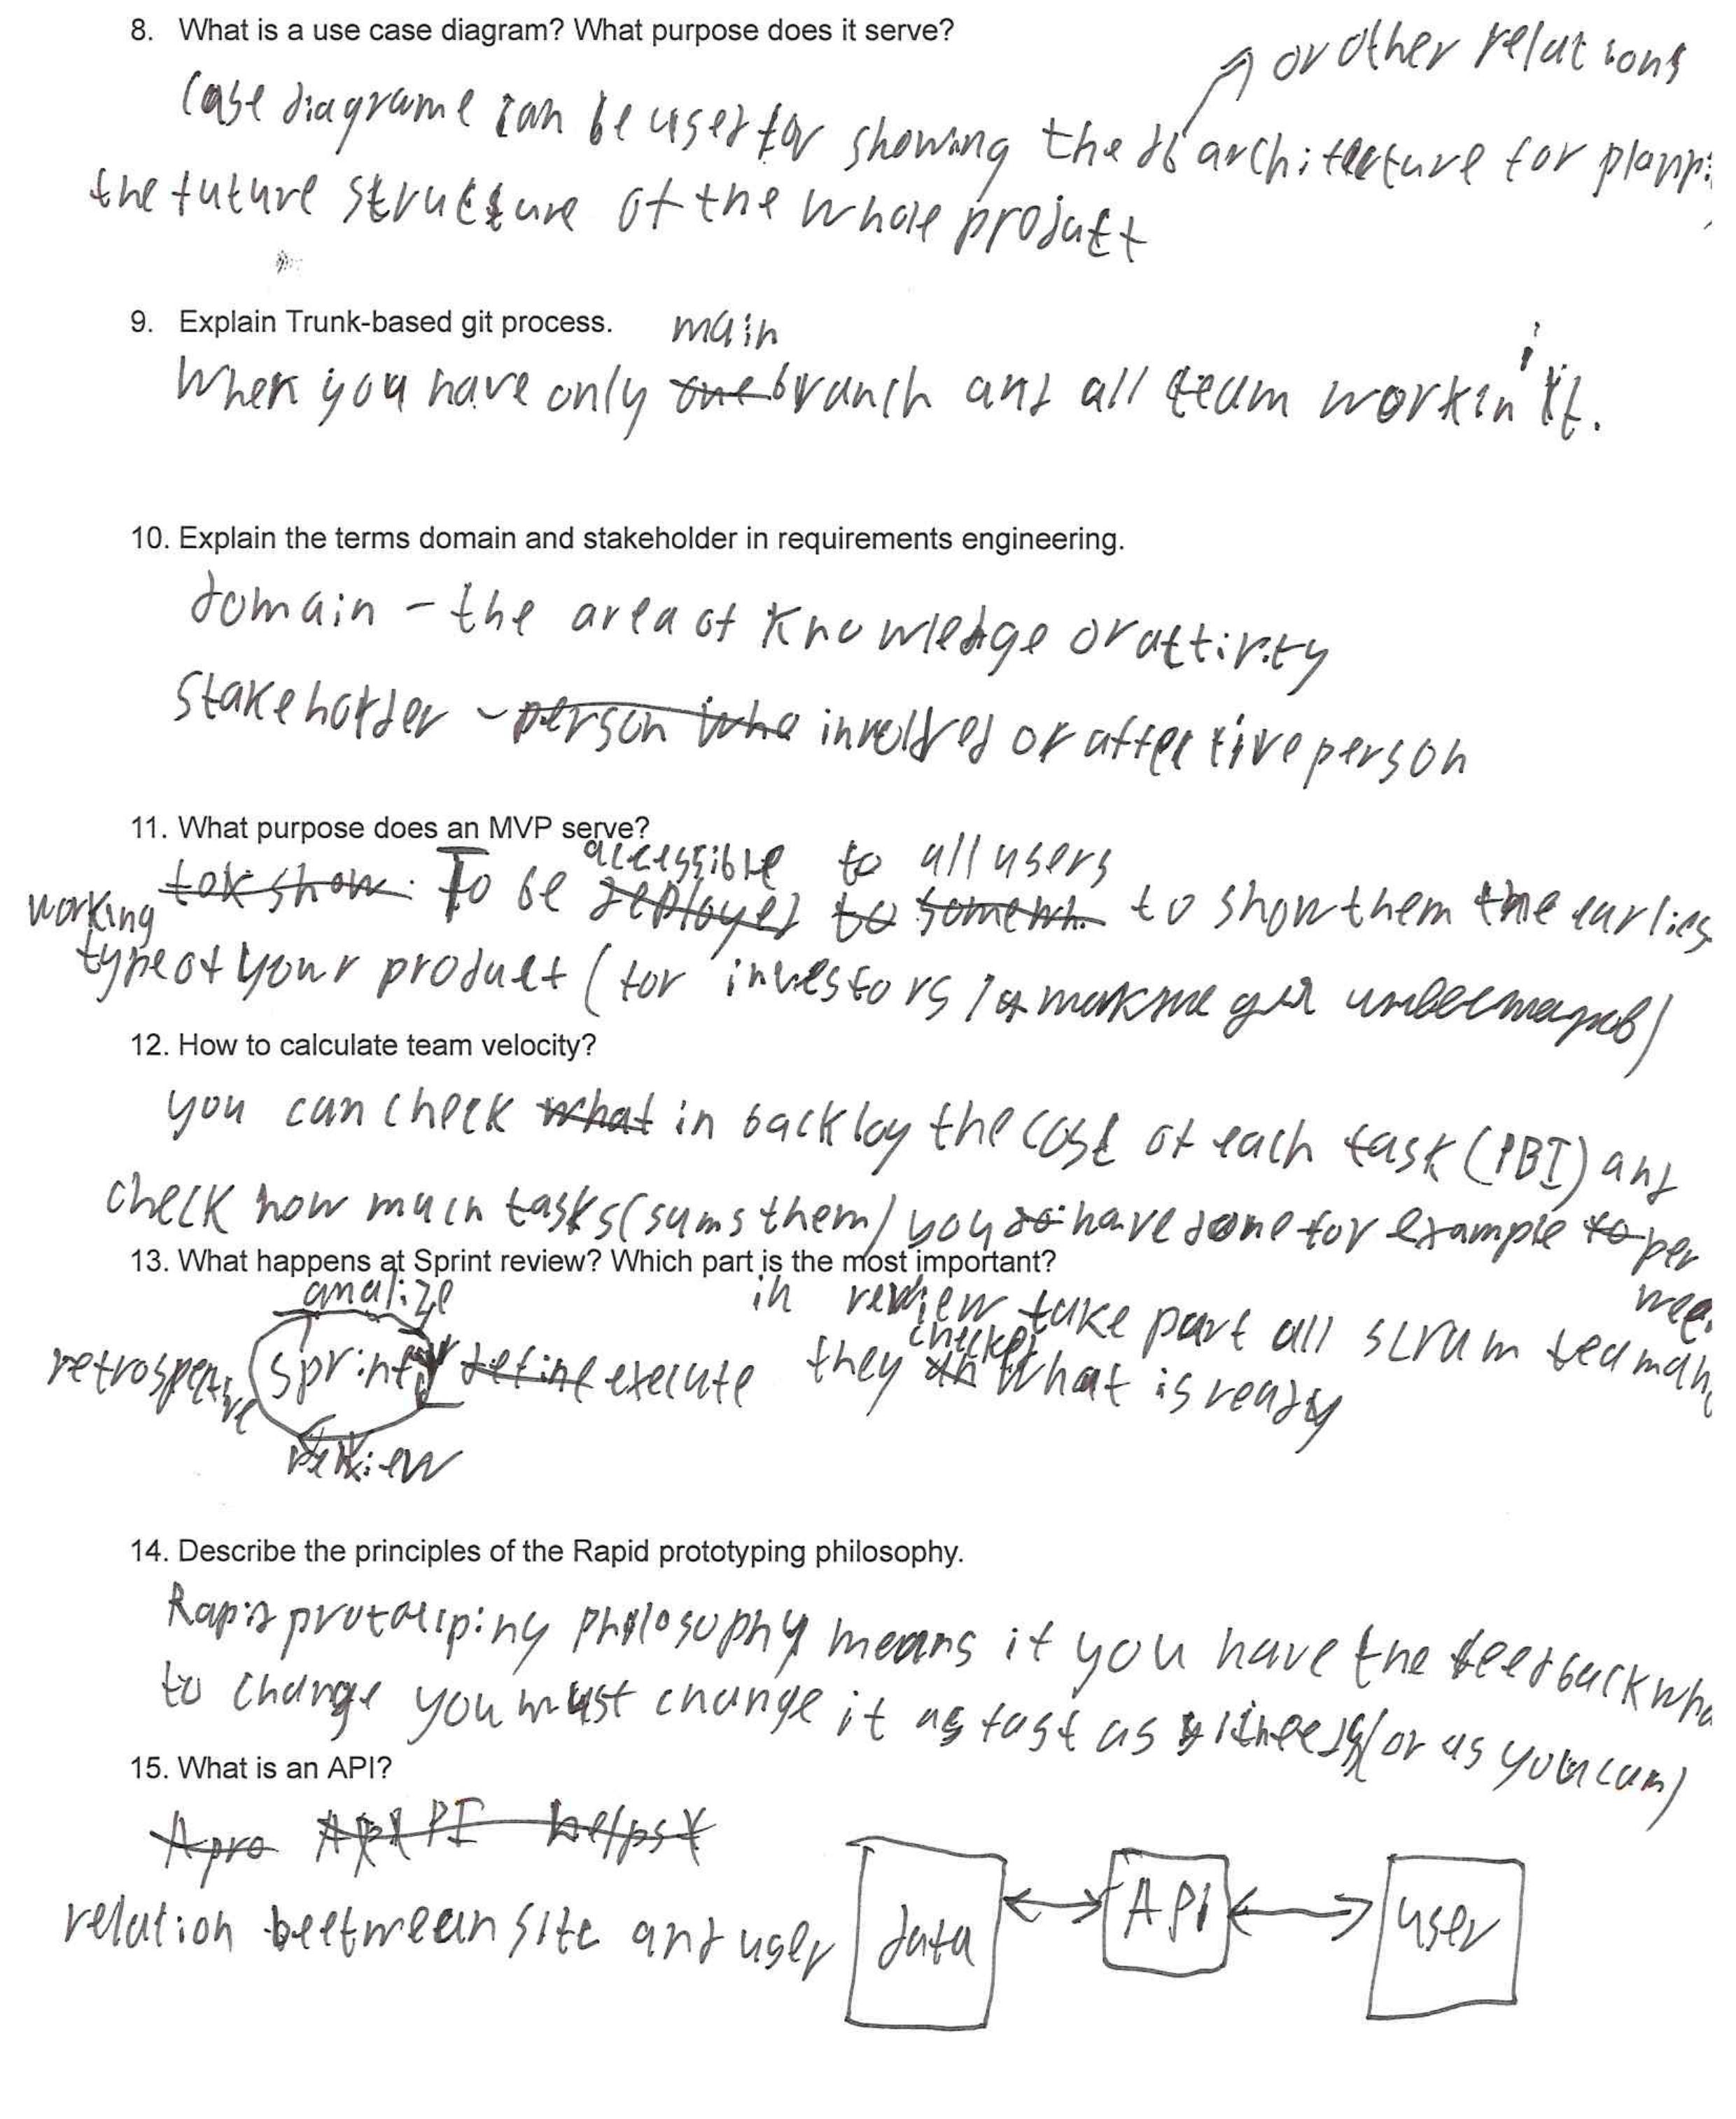 8. What is a use case diagram? What purpose does it serve?
or other relations
Case diagrame can be used for showing the db architecture for plann
the future structure of the whole project
9. Explain Trunk-based git process.
main
When you have only one branch and all team work in it.
10. Explain the terms domain and stakeholder in requirements engineering.
domain - the area of knowledge or activity
stakeholder - person who involved or affective person
11. What purpose does an MVP serve?
accessible to all users
show. To be deployed to to show them the earlies
working
type of your product (for investors /
12. How to calculate team velocity?
you can check what in backlog the cost of each task (PBI) and
check how much tasks (sums them) you have done for example to per
wee
13. What happens at Sprint review? Which part is the most important?
analize
in review take part all scrum team and
checked
retrospective sprint define execute they what is ready
review
14. Describe the principles of the Rapid prototyping philosophy.
Rapid prototaiping philosophy means if you have the feedback wha
to change you must change it as fast as (or as you can)
15. What is an API?
Apro API helps
relation beetween site and user data API user